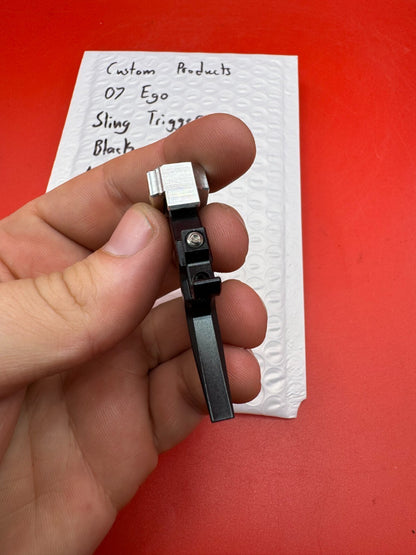 Custom Products
07 Ego
Sling Trigger
Black